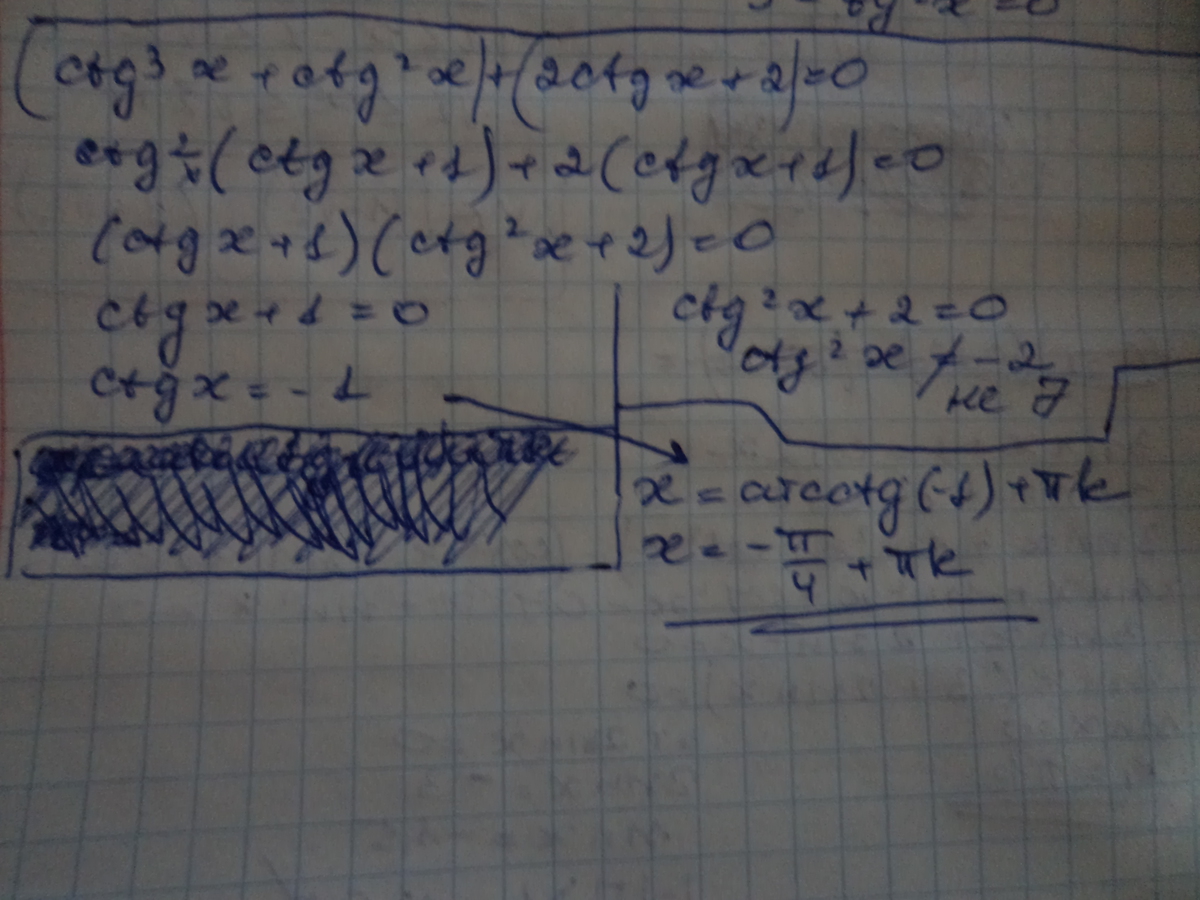 (ctg³ x + ctg² x) + (2ctg x + 2) = 0
ctg² x (ctg x + 1) + 2 (ctg x + 1) = 0
(ctg x + 1) (ctg² x + 2) = 0
ctg x + 1 = 0
ctg x = - 1
ctg² x + 2 = 0
ctg² x ≠ - 2
не
x = arcctg (-1) + πk
x = - π/4 + πk